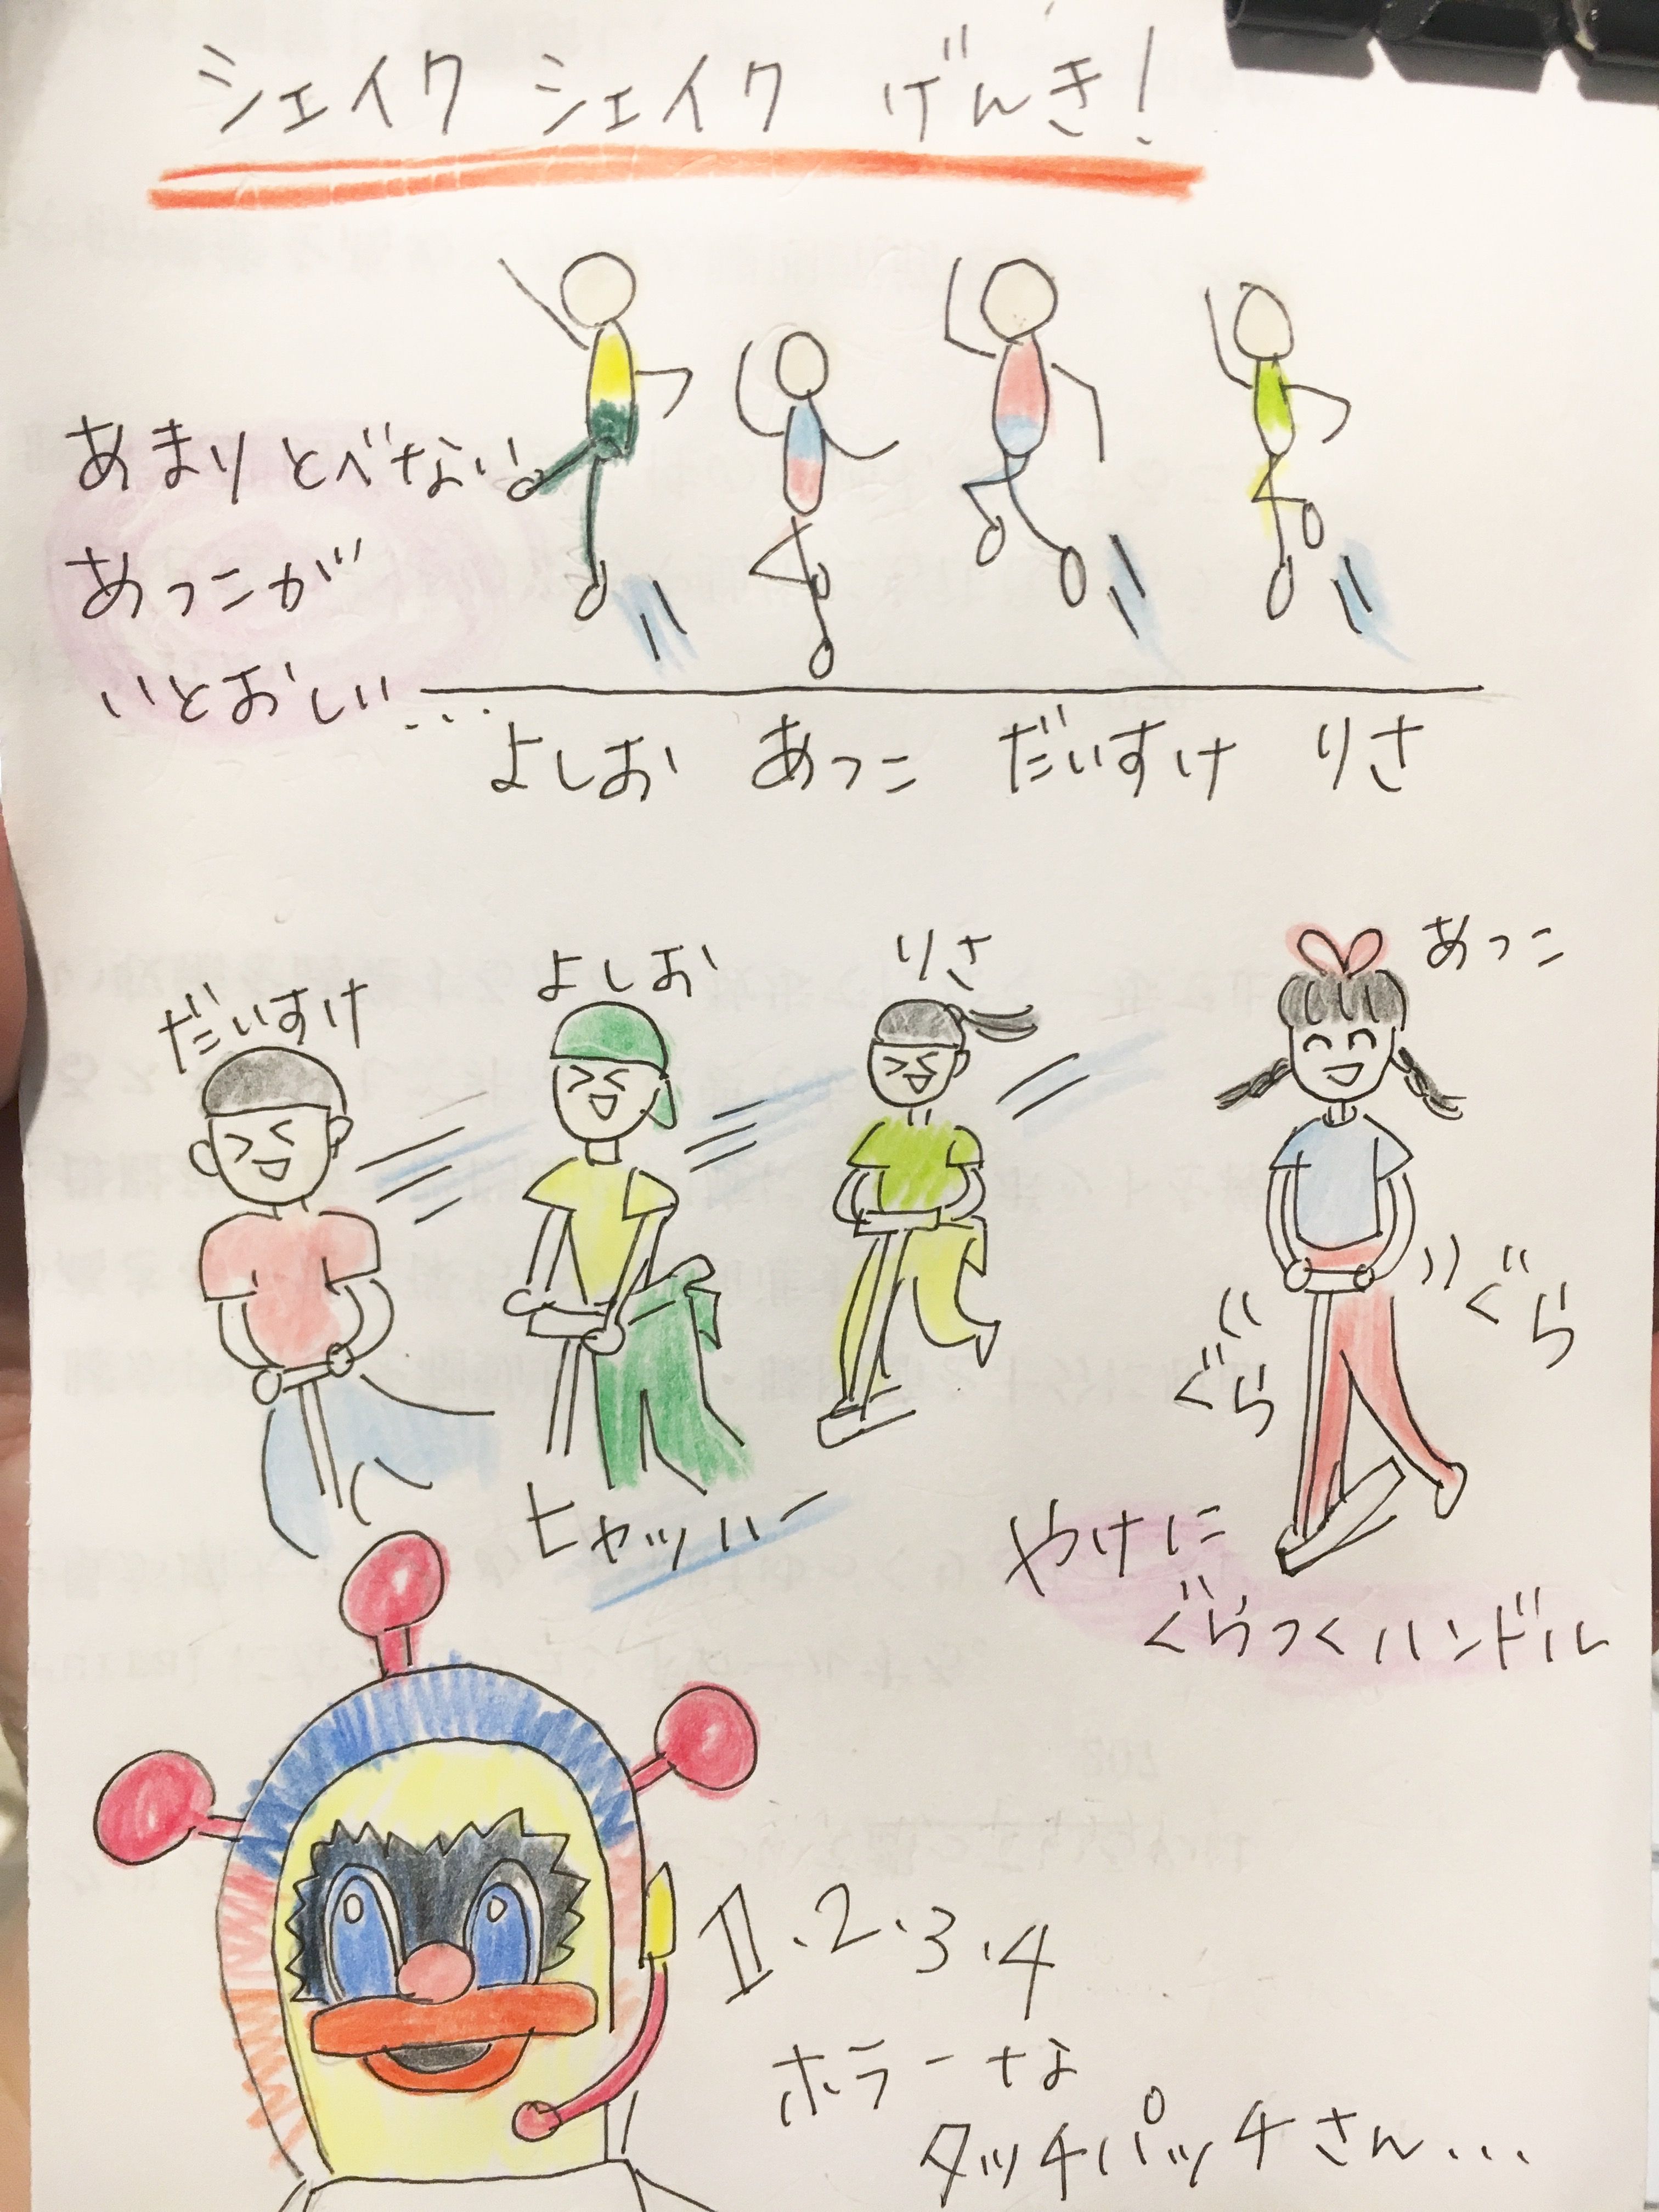 シェイク シェイク げんき!
あまりとべない
あっこが
いとおしい...
よしお あっこ だいすけ りさ
だいすけ
よしお
りさ
あっこ
ぐら
ぐら
ヒャッハー
やけに
ぐらつくハンドル
1.2.3.4
ホラーな
タッチパッチさん...